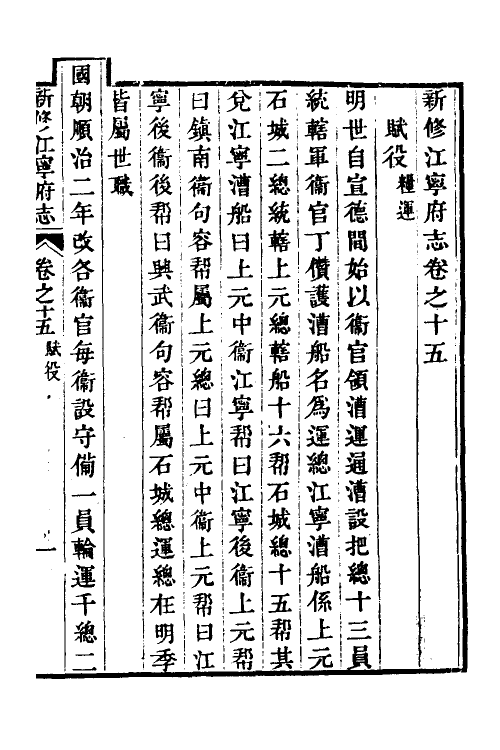 新修江寧府志卷之十五
賦役 糧運
明世自宣德間始以衞官領漕運通漕設把總十三員
統轄軍衞官丁儹護漕船名爲運總江寧漕船係上元
石城二總統轄上元總轄船十六帮石城總十五帮其
兌江寧漕船曰上元中衞江寧帮曰江寧後衞上元帮
曰鎮南衞句容帮屬上元總曰上元中衞上元帮曰江
寧後衞後帮曰興武衞句容帮屬石城總運總在明季
皆屬世職
國朝順治二年改各衞官每衞設守備一員輪運千總二
新修江寧府志
卷之十五 賦役
一